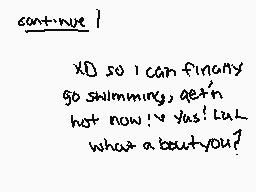 continue!
XD so i can finally
go swimming, get'n
hot now!v Yas! LuL
what about you?